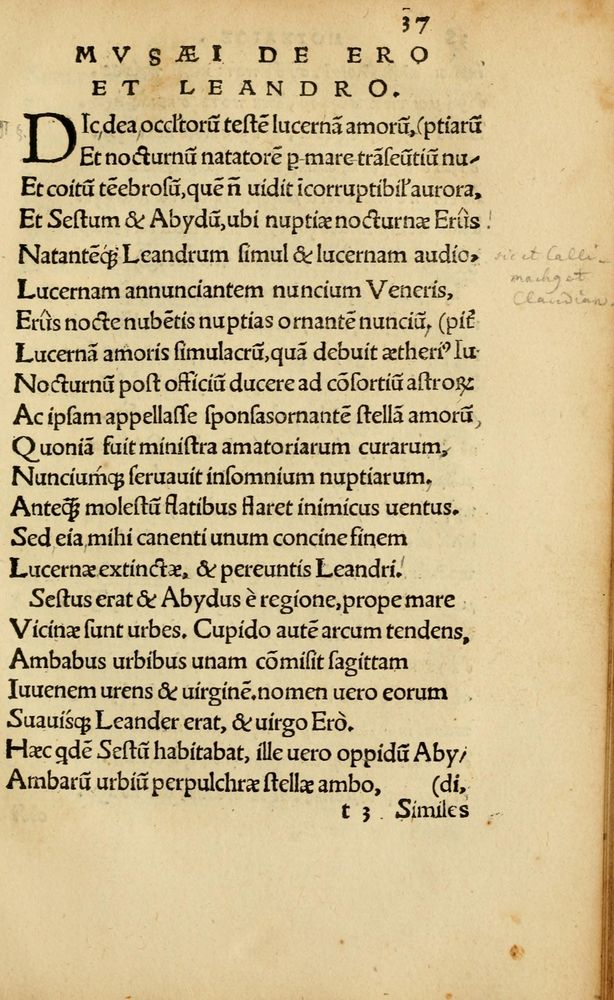 37
MVSÆI DE ERO
ET LEANDRO.
DIc, dea, occultorũ testẽ lucernã amorũ, (ptiarũ
Et nocturnũ natatorẽ p̱ mare trãseũtiũ nu-
Et coitũ tẽebrosũ, quẽ ñ uidit ĩcorruptibil' aurora,
Et Sestum & Abydũ, ubi nuptiæ nocturnæ Erûs
Natantẽq; Leandrum simul & lucernam audio.
sic et Calli-
machus et
Claudian.
Lucernam annunciantem nuncium Veneris,
Erûs nocte nubẽtis nuptias ornantẽ nunciũ, (pit̃
Lucernã amoris simulacrũ, quã debuit ætheriꝰ Iu-
Nocturnũ post officiũ ducere ad cõsortiũ astroꝝ:
Ac ipsam appellasse sponsasornantẽ stellã amorũ,
Quoniã fuit ministra amatoriarum curarum,
Nunciumq; seruauit insomnium nuptiarum.
Anteq̃; molestũ flatibus flaret inimicus uentus.
Sed eia mihi canenti unum concine finem
Lucernæ extinctæ, & pereuntis Leandri.
Sestus erat & Abydus è regione, prope mare
Vicinæ sunt urbes. Cupido autẽ arcum tendens,
Ambabus urbibus unam cõmisit sagittam
Iuuenem urens & uirginẽ. nomen uero eorum
Suauisq; Leander erat, & uirgo Erò.
Hæc qdẽ Sestũ habitabat, ille uero oppidũ Aby-
Ambarũ urbiũ perpulchræ stellæ ambo, (di,
t 3 Similes